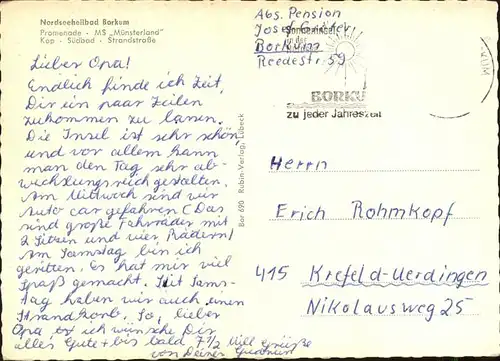 Nordseeheilbad Borkum
Promenade - MS „Münsterland"
Kap - Südbad - Strandstraße
Lieber Opa!
Endlich finde ich Zeit,
Dir ein paar Zeilen
zukommen zu lassen.
Die Insel ist sehr schön,
und vor allem kann
man den Tag sehr ab-
wechslungsreich gestalten.
Am Mittwoch sind wir
Auto car gefahren (Das
sind große Fahrräder mit
2 Sitzen und vier Rädern)
Am Samstag bin ich
geritten. Es hat mir viel
Spaß gemacht. Seit Sams-
tag haben wir auch einen
Strandkorb. So, lieber
Opa ich wünsche Dir
alles Gute + bis bald Viele Grüße
von Deiner
Bor 690 Rubin-Verlag, Lübeck
Abs. Pension
Josef
Borkum
Reedestr. 59
BORKUM
zu jeder Jahreszeit
Herrn
Erich Rohmkopf
415 Krefeld-Uerdingen
Nikolausweg 25